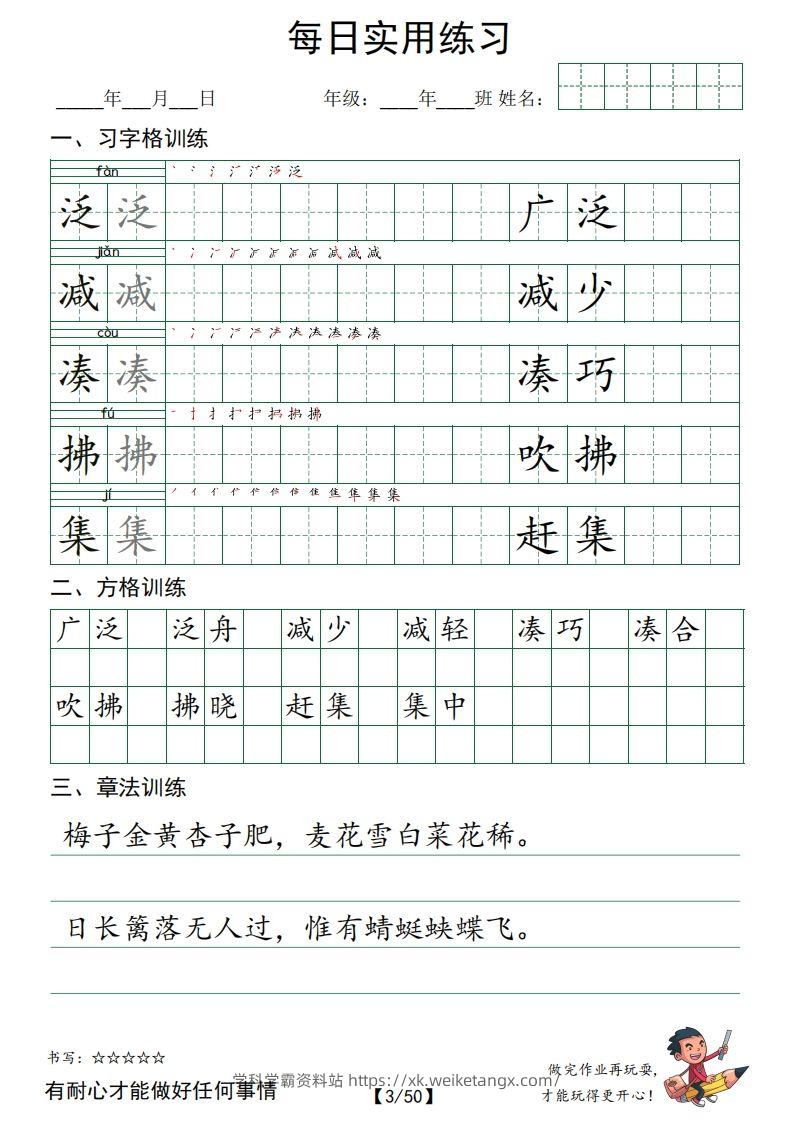 每日实用练习
_____年___月___日 年级：____年____班 姓名：
一、习字格训练
fàn
泛 泛 广 泛
jiǎn
减 减 减 少
còu
凑 凑 凑 巧
fú
拂 拂 吹 拂
jí
集 集 赶 集
二、方格训练
广泛 泛舟 减少 减轻 凑巧 凑合
吹拂 拂晓 赶集 集中
三、章法训练
梅子金黄杏子肥，麦花雪白菜花稀。
日长篱落无人过，惟有蜻蜓蛱蝶飞。
书写：☆☆☆☆☆
有耐心才能做好任何事情
学科学霸资料站 https://xk.weiketangx.com/
【3/50】
做完作业再玩耍，
才能玩得更开心！